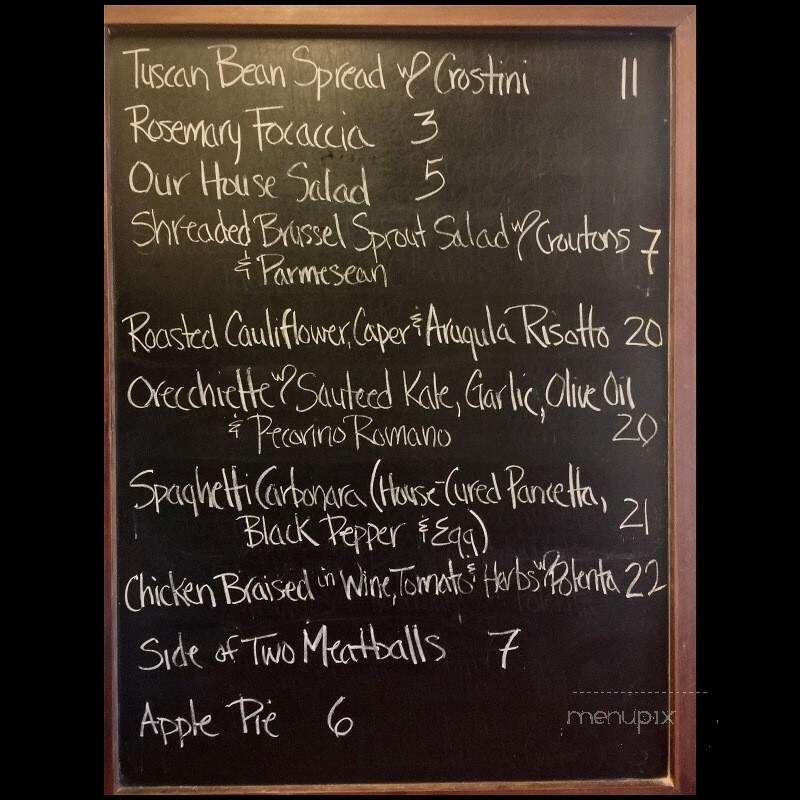 Tuscan Bean Spread w/ Crostini 11
Rosemary Focaccia 3
Our House Salad 5
Shreaded Brussel Sprout Salad w/ Croutons 7
& Parmesean
Roasted Cauliflower, Caper & Arugula Risotto 20
Orecchiette w/ Sauteed Kale, Garlic, Olive Oil
& Pecorino Romano 20
Spaghetti Carbonara (House-Cured Pancetta,
Black Pepper & Egg) 21
Chicken Braised in Wine, Tomato & Herbs w/ Polenta 22
Side of Two Meatballs 7
Apple Pie 6
menupix